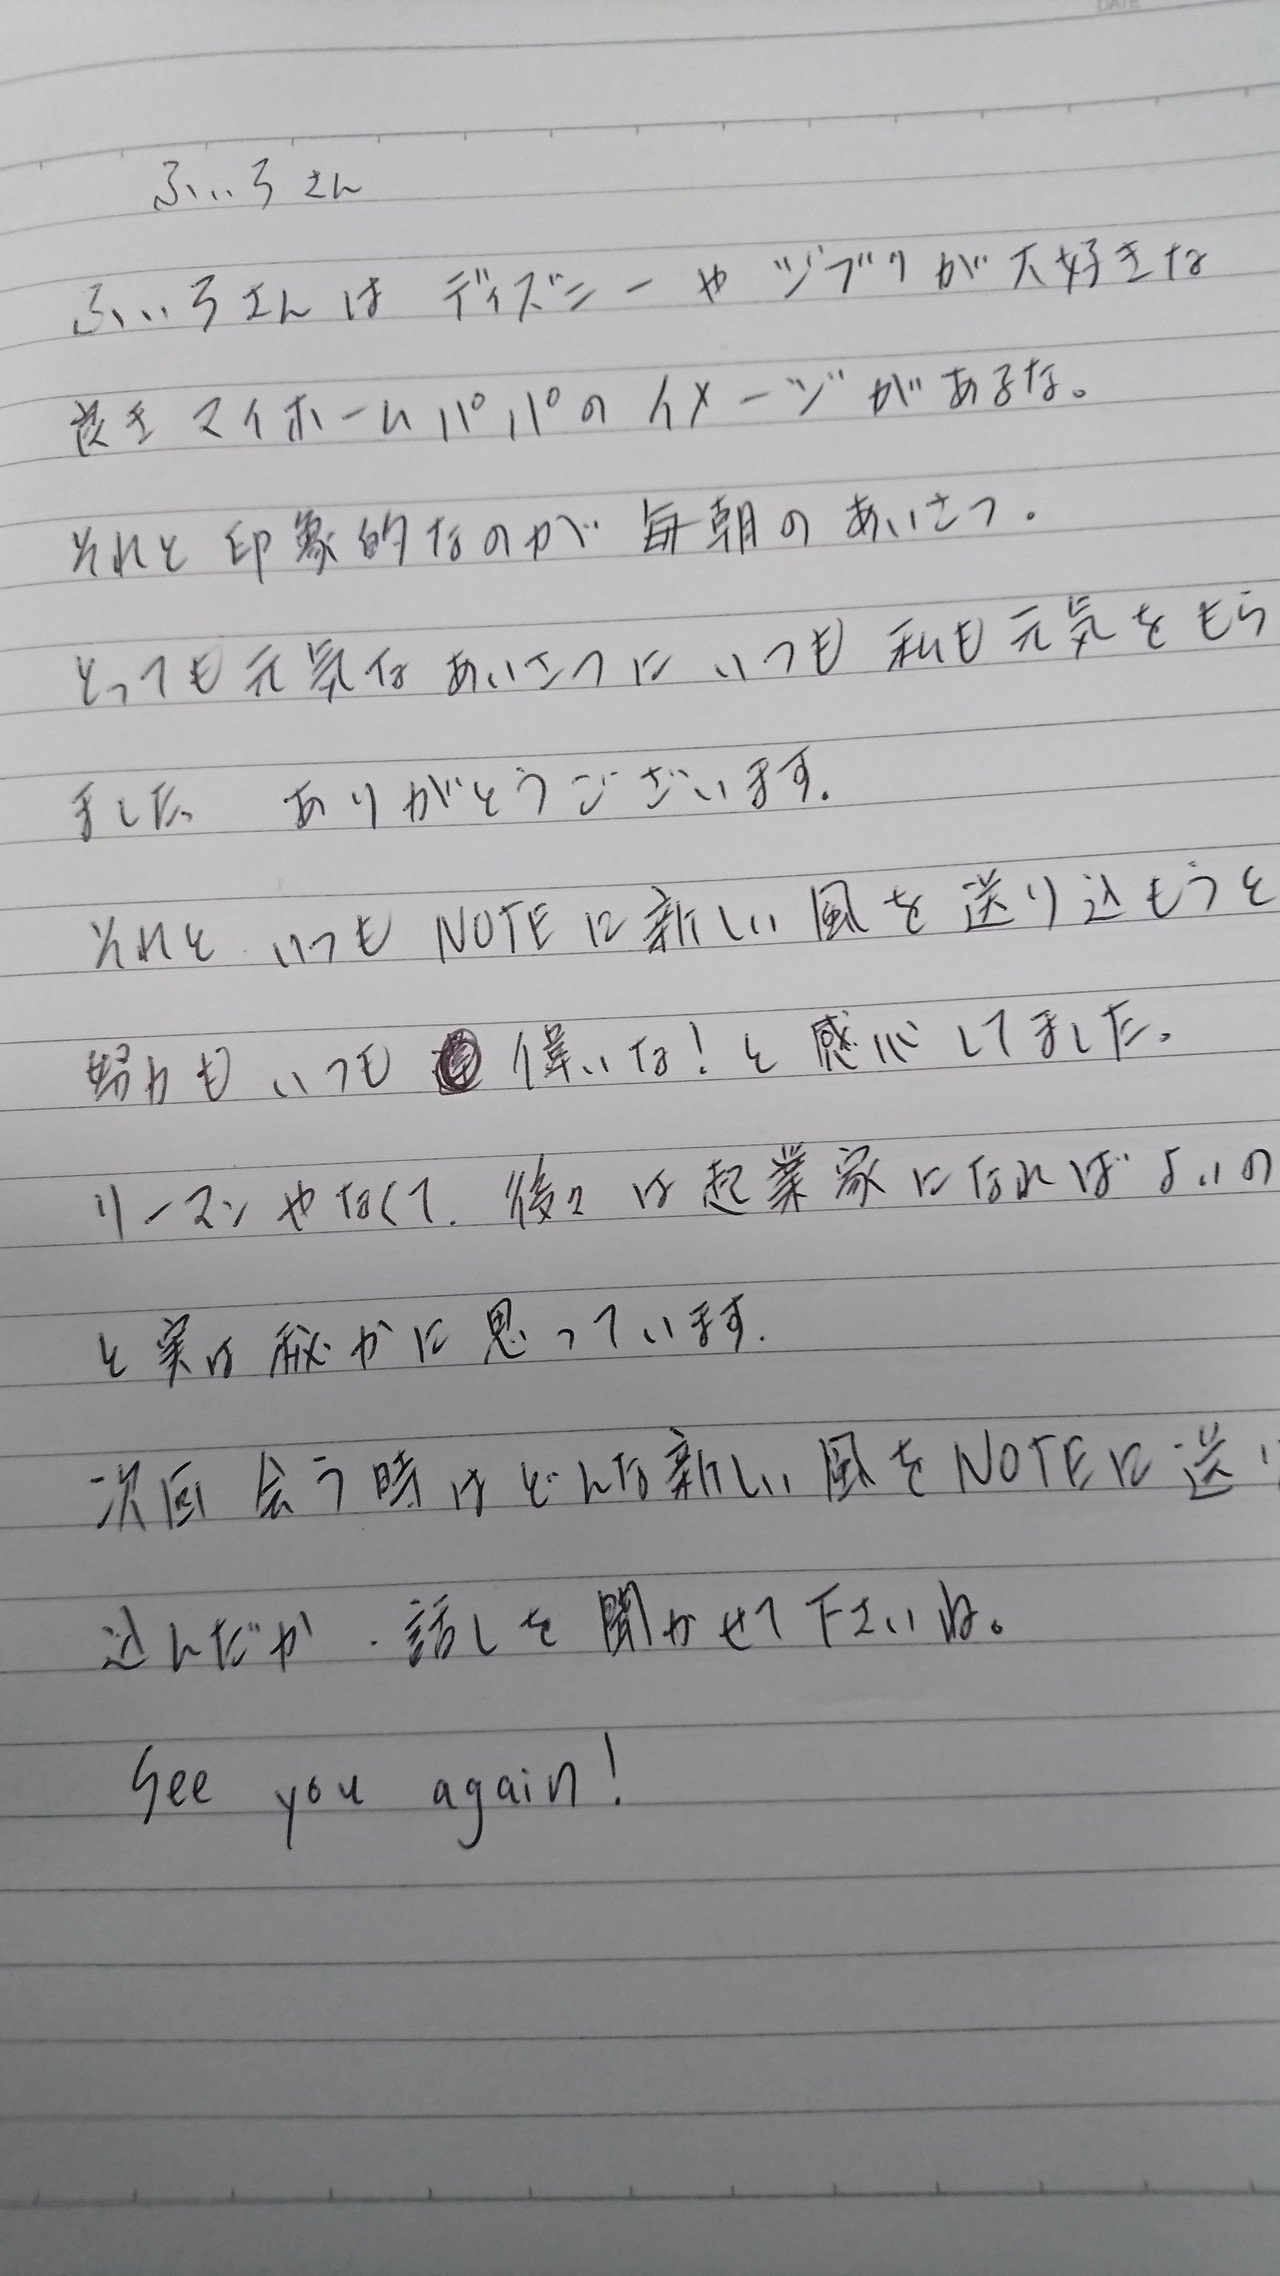 DATE
ふぃろさん
ふぃろさんは ディズニーや ジブリが大好きな
良き マイホームパパの イメージがあるな。
それと 印象的なのが 毎朝の あいさつ.
とっても元気な あいさつに いつも 私も元気をもら
ました。 ありがとうございます.
それと いつも NOTEに新しい 風を 送り込もうと
努力も いつも 偉いな!と 感心してました。
リーマンやなくて. 後々は起業家になればよいの
と実は秘かに思っています.
次回 会う時はどんな新しい風をNOTEに送り
込んだか.話しを聞かせて下さいね。
See you again!